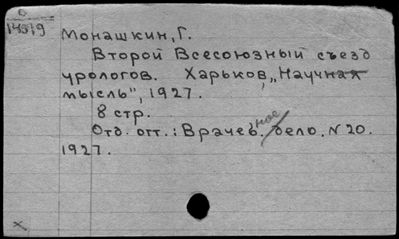 б
14519
Монашкин, Г.
Второй Всесоюзный съезд
урологов. Харьков, „Научная
мысль", 1927.
8 стр.
Отд. отт.: Врачебное дело. № 20.
1927.